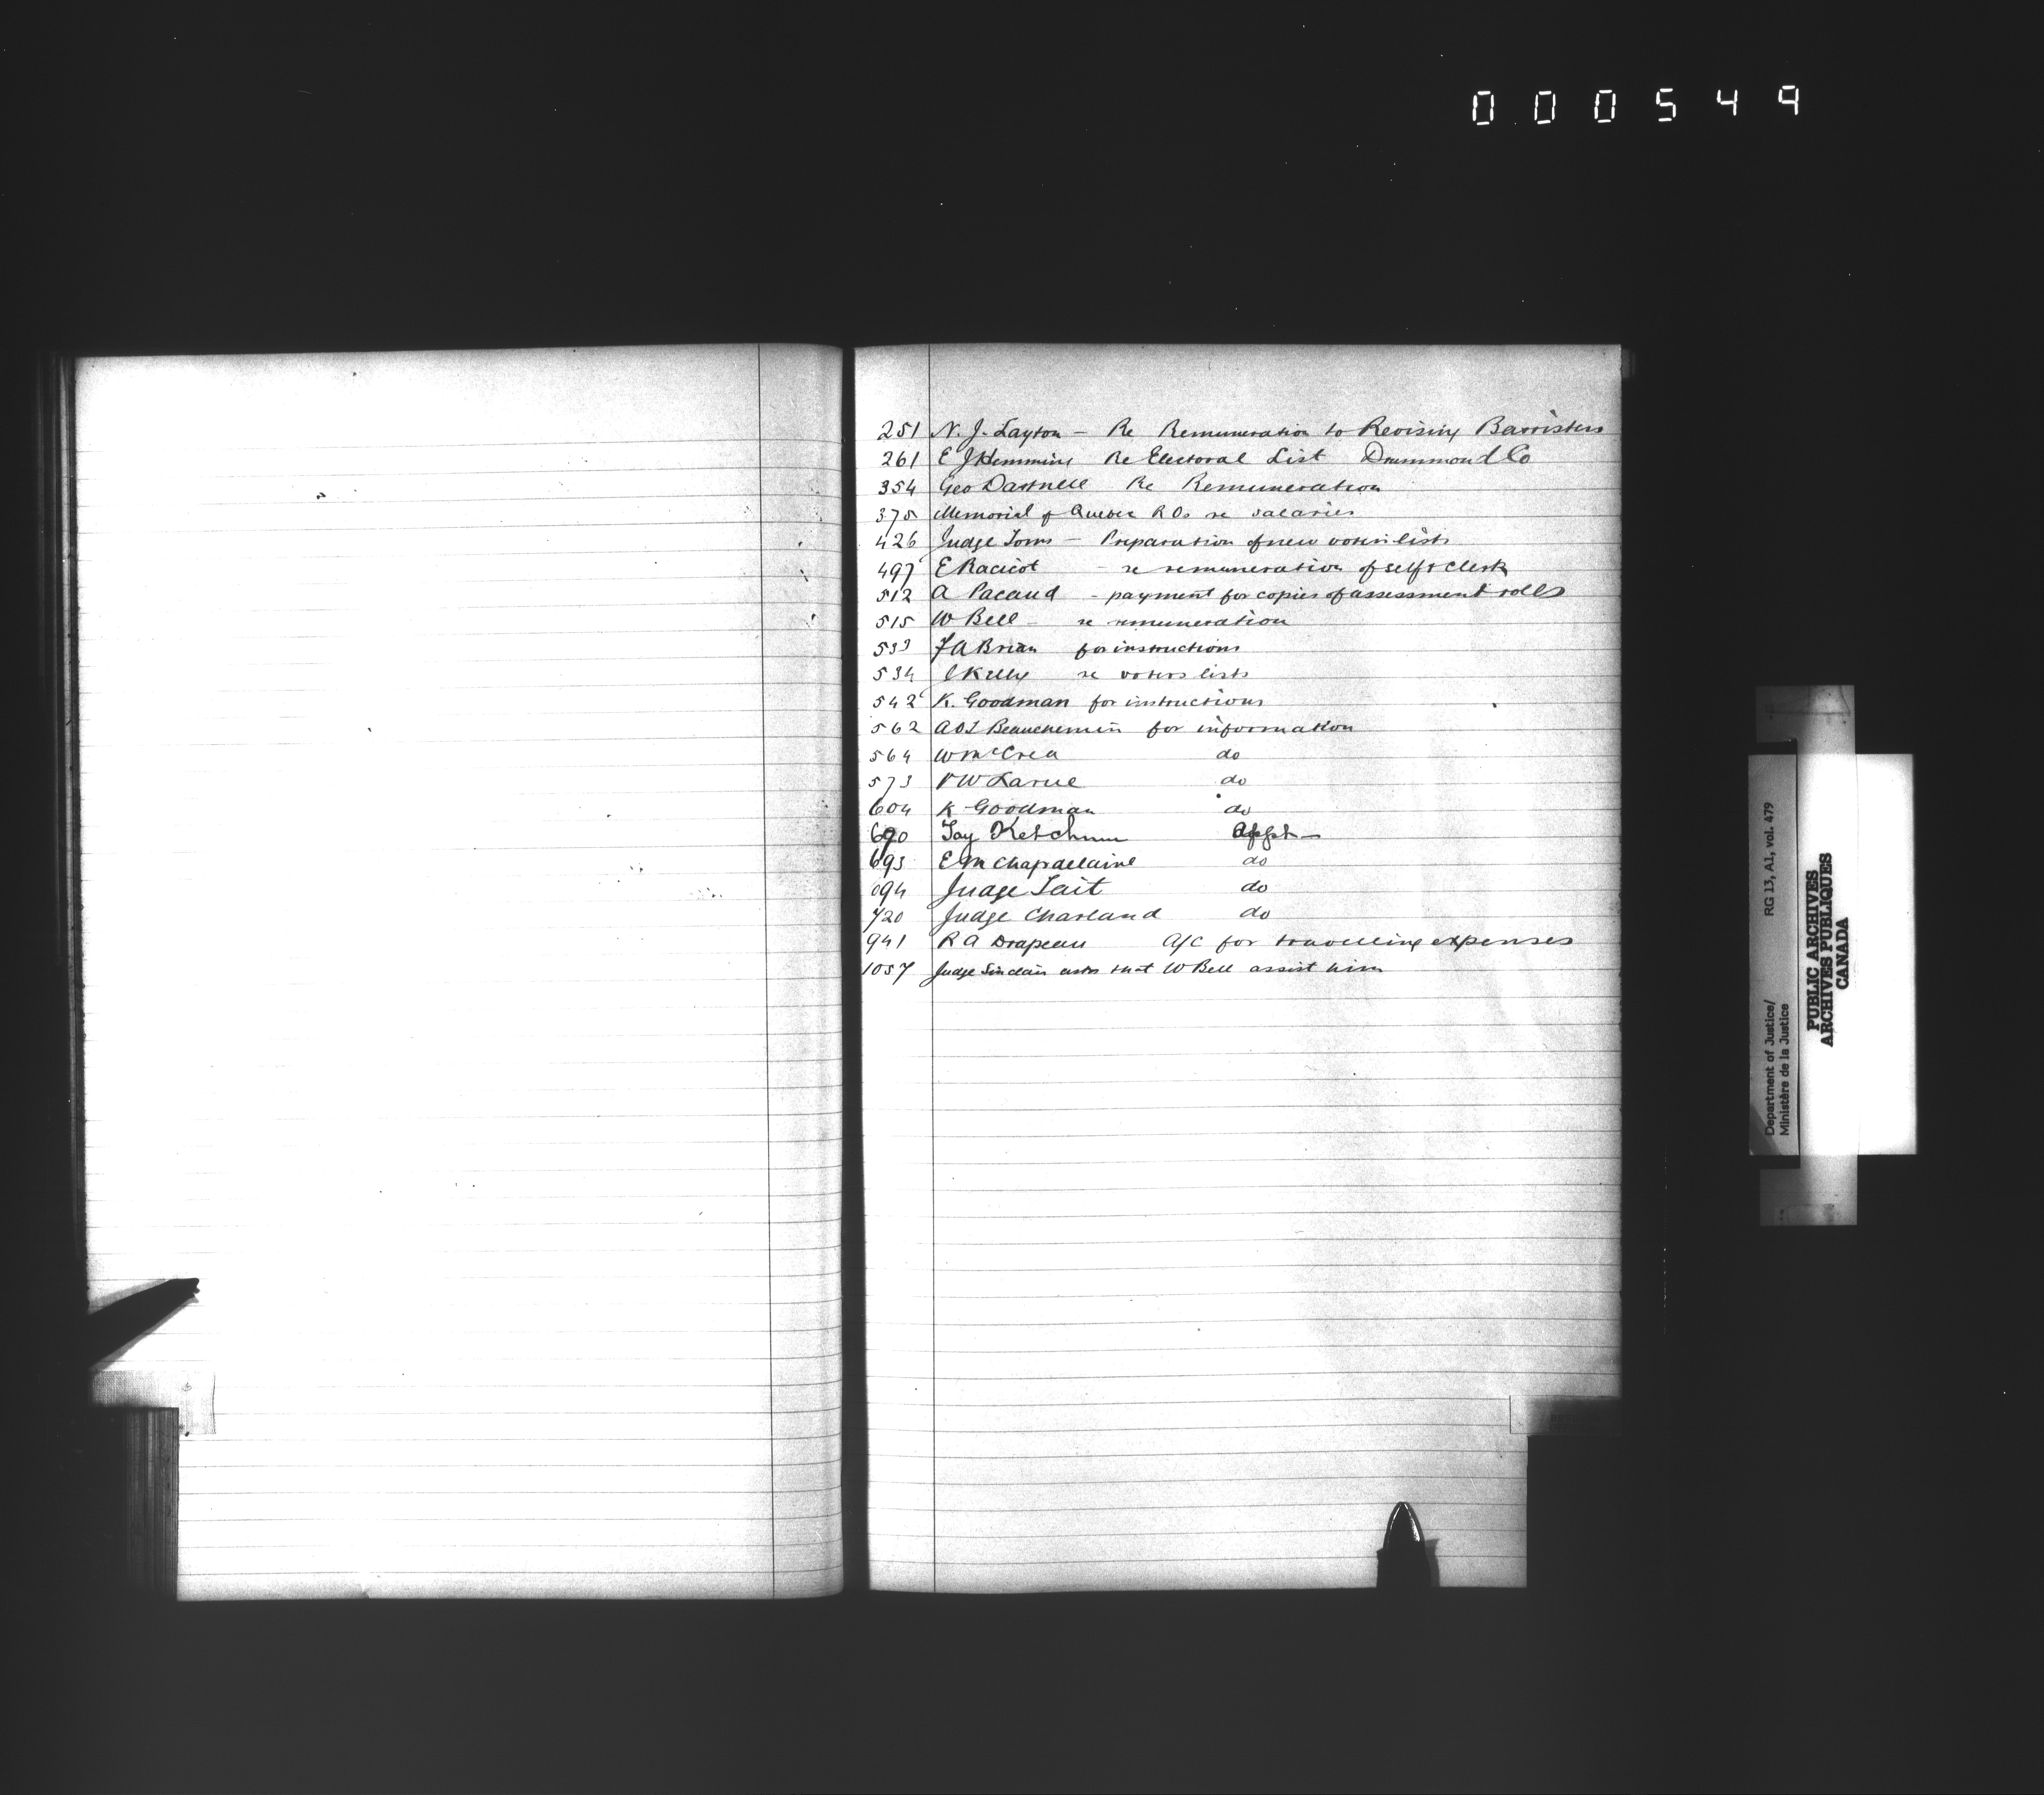 000549
251 N. J. Layton — Re Remuneration to Revising Barristers
261 E J Hemming Re Electoral List Drummond Co
354 Geo Dartnell Re Remuneration
375 Memorial of Quebec R Os re salaries
426 Judge Toms — Preparation of new voters lists
497 E Racicot - re remuneration of self & clerk
512 A Pacaud - payment for copies of assessment rolls
515 W Bell - re remuneration
533 F A Brian for instructions
534 C Kelly re voters lists
542 K. Goodman for instructions
562 A O T Beauchemin for information
564 W McCrea do
573 V W Larue do
604 K Goodman do
690 Jay Ketchum Appt —
693 E M Chapdelaine do
694 Judge Tait do
720 Judge Charland do
941 R A Drapeau A/C for travelling expenses
1057 Judge Sinclair asks that W Bell assist him
Department of Justice/ RG 13, A1, vol. 479
Ministère de la Justice
PUBLIC ARCHIVES
ARCHIVES PUBLIQUES
CANADA